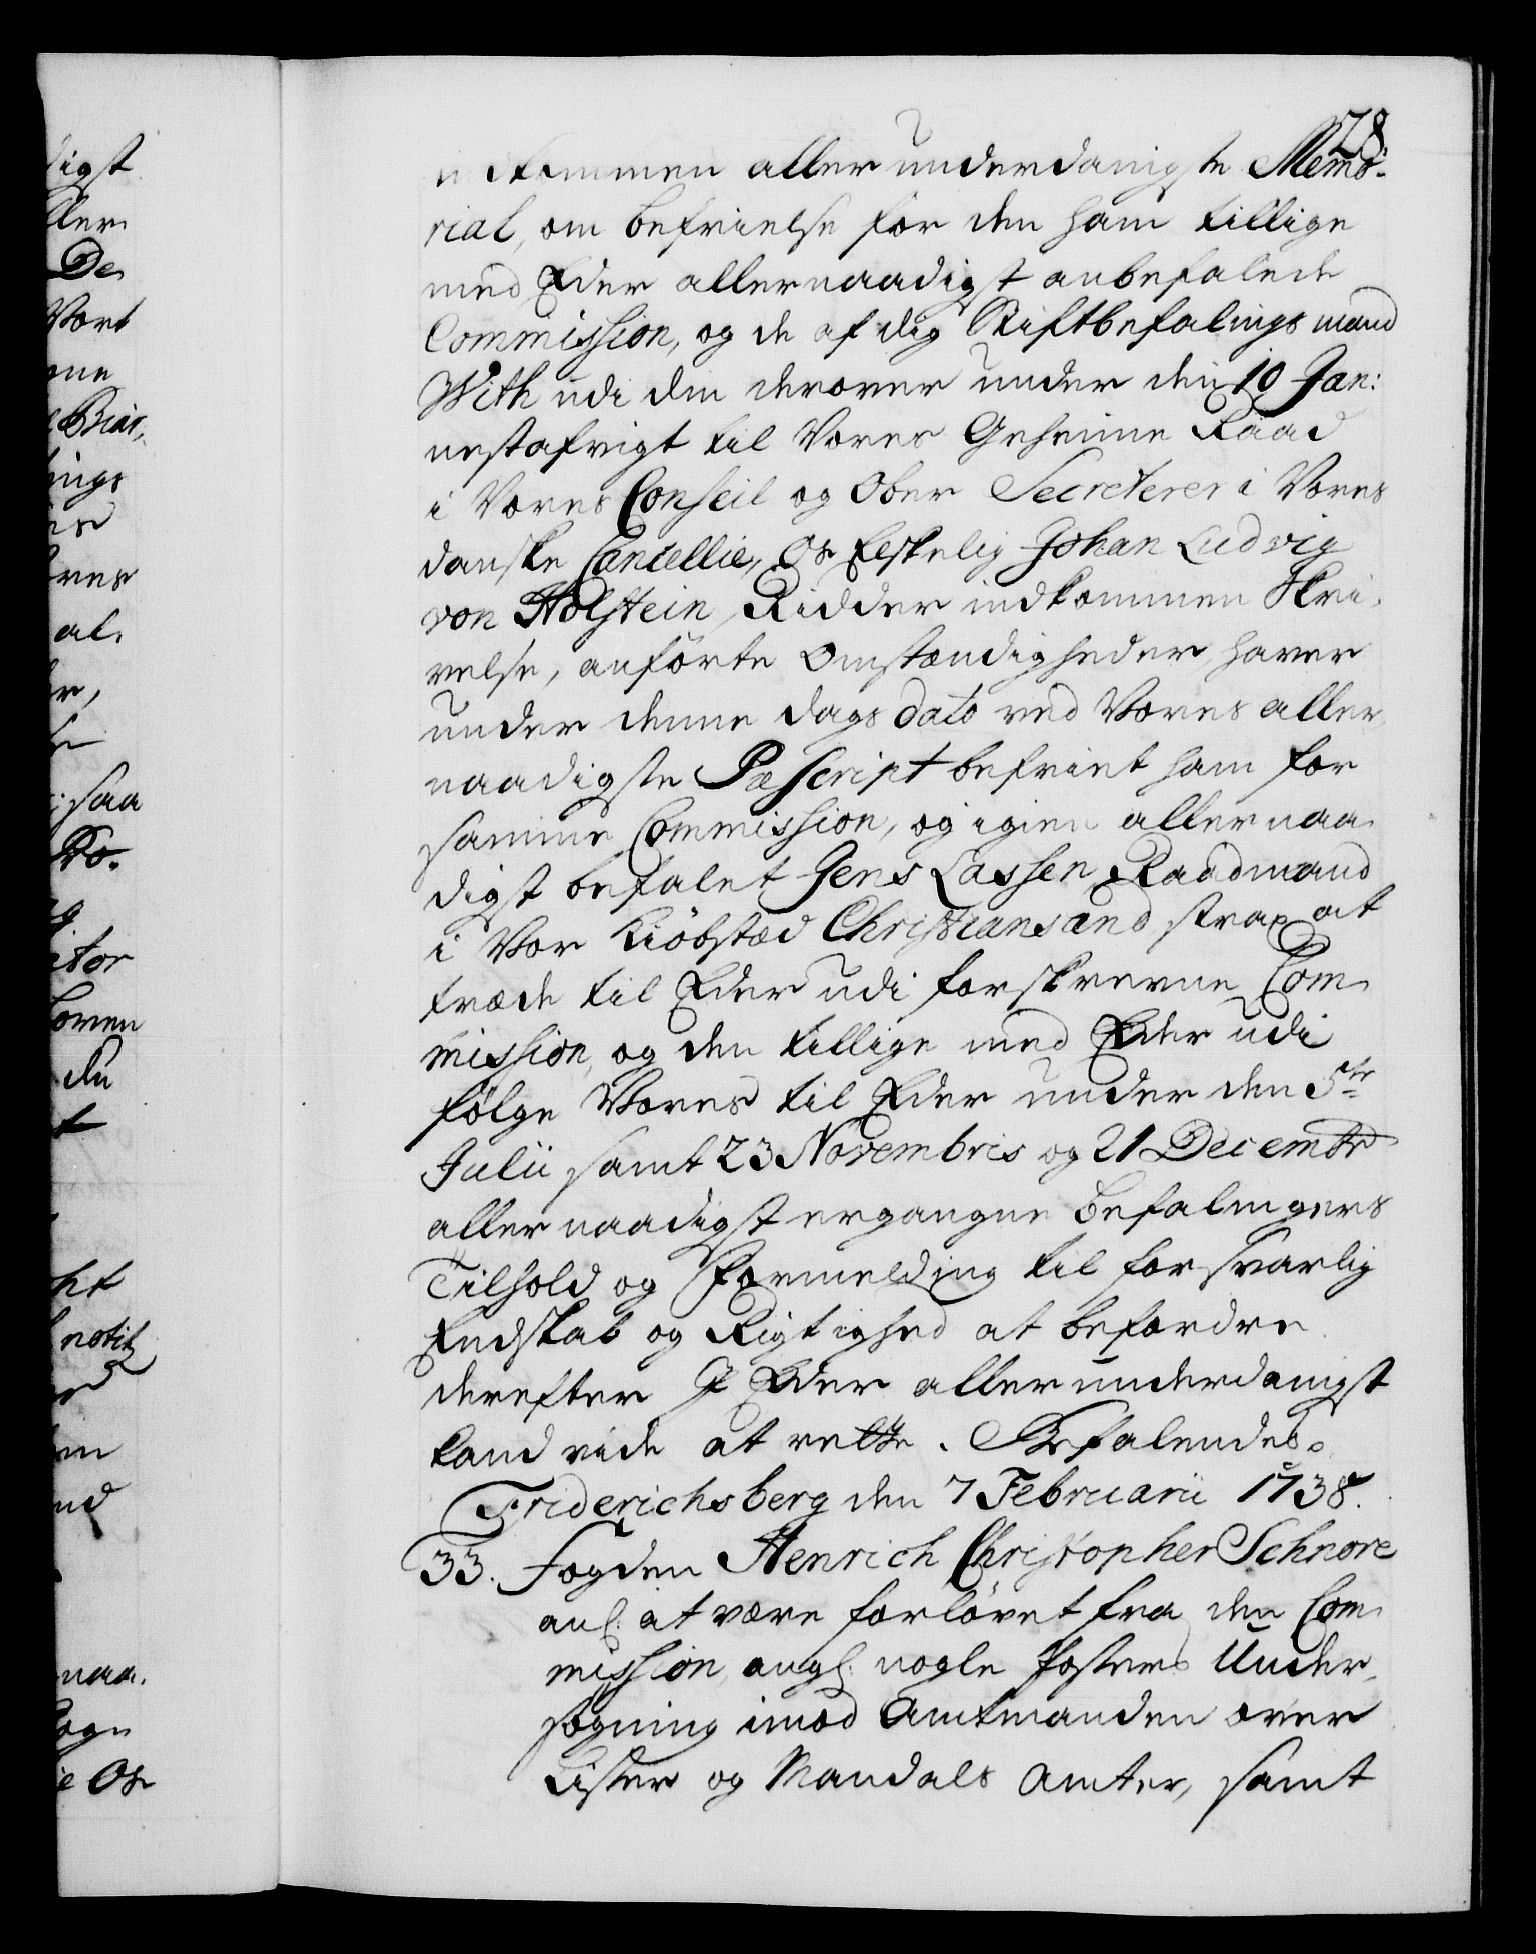 28.
indkommen allerunderdanigste Memo-
rial, om befrielse for den ham tillige
med Eder allernaadigst anbefalede
Commission, og de af dig Stiftbefalingsmand
With udi din derover under den 10 Jan:
nestafvigt til Vores Geheime Raad
i Vores Conseil og Ober Secreterer i Vores
danske Cancellie, Os Elskelig Johan Ludvig
von Holstein, Ridder indkommen Skri-
velse, anførte Omstændigheder, haver
under denne dags dato ved Vores aller-
naadigste Rescript befriet ham for
samme Commission, og igien allernaa-
digst befalet Jens Lassen, Raadmand
i Vor Kiøbstæd Christiansand strax at
træde til Eder udi forskrevne Com-
mission, og den tillige med Eder udi
følge Vores til Eder under den 5te
Julii samt 23 Novembris og 21 Decembr
allernaadigst ergangne Befalingers
Tilhold og Formelding til forsvarlig
Endskab og Rigtighed at befordre
derefter I Eder allerunderdanigst
kand vide at rette. Befalendes
Friderichsberg den 7 Februarii 1738.
33. Fogden Henrich Christopher Schnore
anl. at være forlövet fra den Com-
mission, angl. nogle Posters Under-
søgning imod Amtmanden over
Lister og Mandals Amter, samt
digst
aller
De
Vort
ings
saa
itor
Loven
du
notitz
naa-
Os